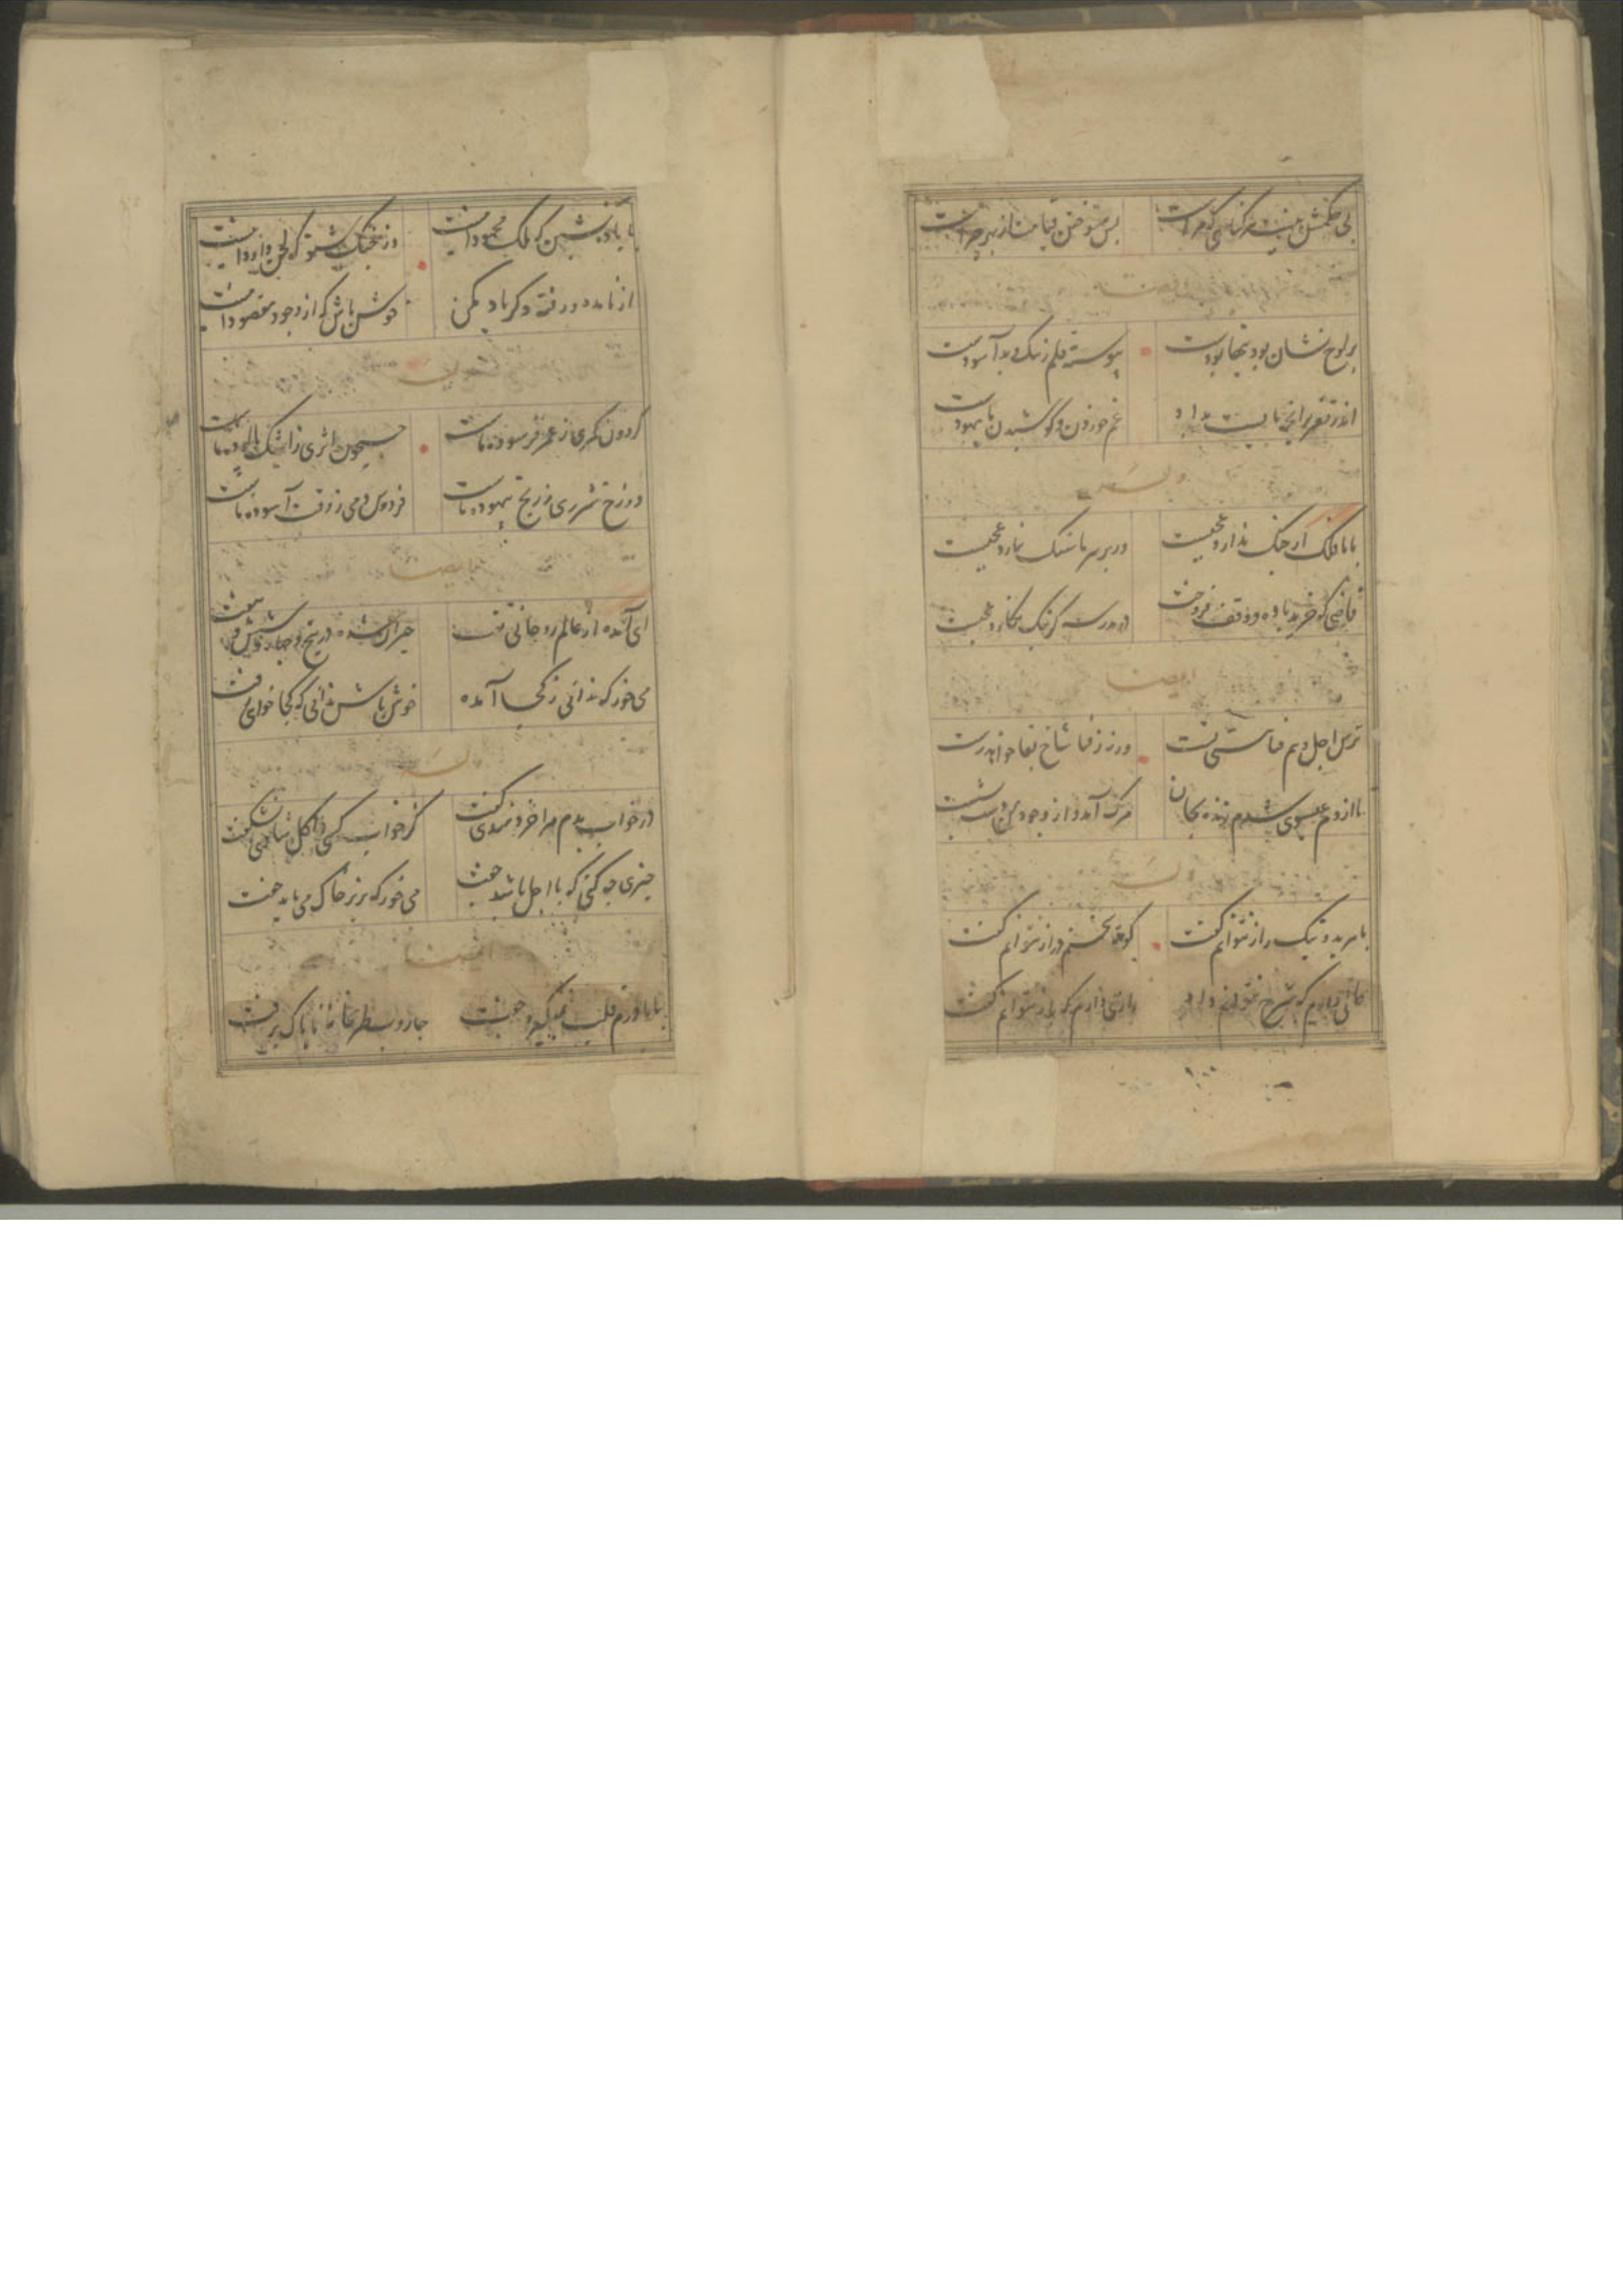 بی حکمش نیست هر گناهی که مراست    پس سوختن قیامت از بهر چراست
ایضا
بر لوح نشان بودنیها بودست    پیوسته قلم ز نیک و بد آسودست
اندر تقدیر آنچه بایست بداد    غم خوردن و کوشیدن ما بیهودست
وله
با ما فلک ار جنگ ندارد عجبست    ور بر سر ما سنگ نبارد عجبست
قاضی که خرید باده و وقف فروخت    در مدرسه گر بنگ نکارد عجبست
ایضا
ترس اجل و بیم فنا هستی تست    ورنه ز فنا شاخ بقا خواهد رست
تا از دم عیسوی شدم زنده بجان    مرگ آمد و از وجود من دست بشست
وله
با هر بد و نیک راز نتوانم گفت    کوته سخنم دراز نتوانم گفت
حالی دارم که شرح نتوانم داد    رازی دارم که باز نتوانم گفت
با باده نشین که ملک محمود اینست    وز چنگ شنو که لحن داود اینست
از نامده و رفته دگر یاد مکن    خوش باش که از وجود مقصود اینست
گردون کمری ز عمر فرسوده ماست    جیحون اثری ز اشک پالوده ماست
دوزخ شرری ز رنج بیهوده ماست    فردوس دمی ز وقت آسوده ماست
ایضا
ای آمده از عالم روحانی تفت    حیران شده در پنج و چهار و شش و هفت
می خور که ندانی ز کجا آمده    خوش باش ندانی که کجا خواهی رفت
وله
در خواب بدم مرا خردمندی گفت    کز خواب کسی را گل شادی نشکفت
چیزی چه کنی که با اجل باشد جفت    می خور که بزیر خاک می باید خفت
ایضا
جاروب طربخانه ما پاک برفت